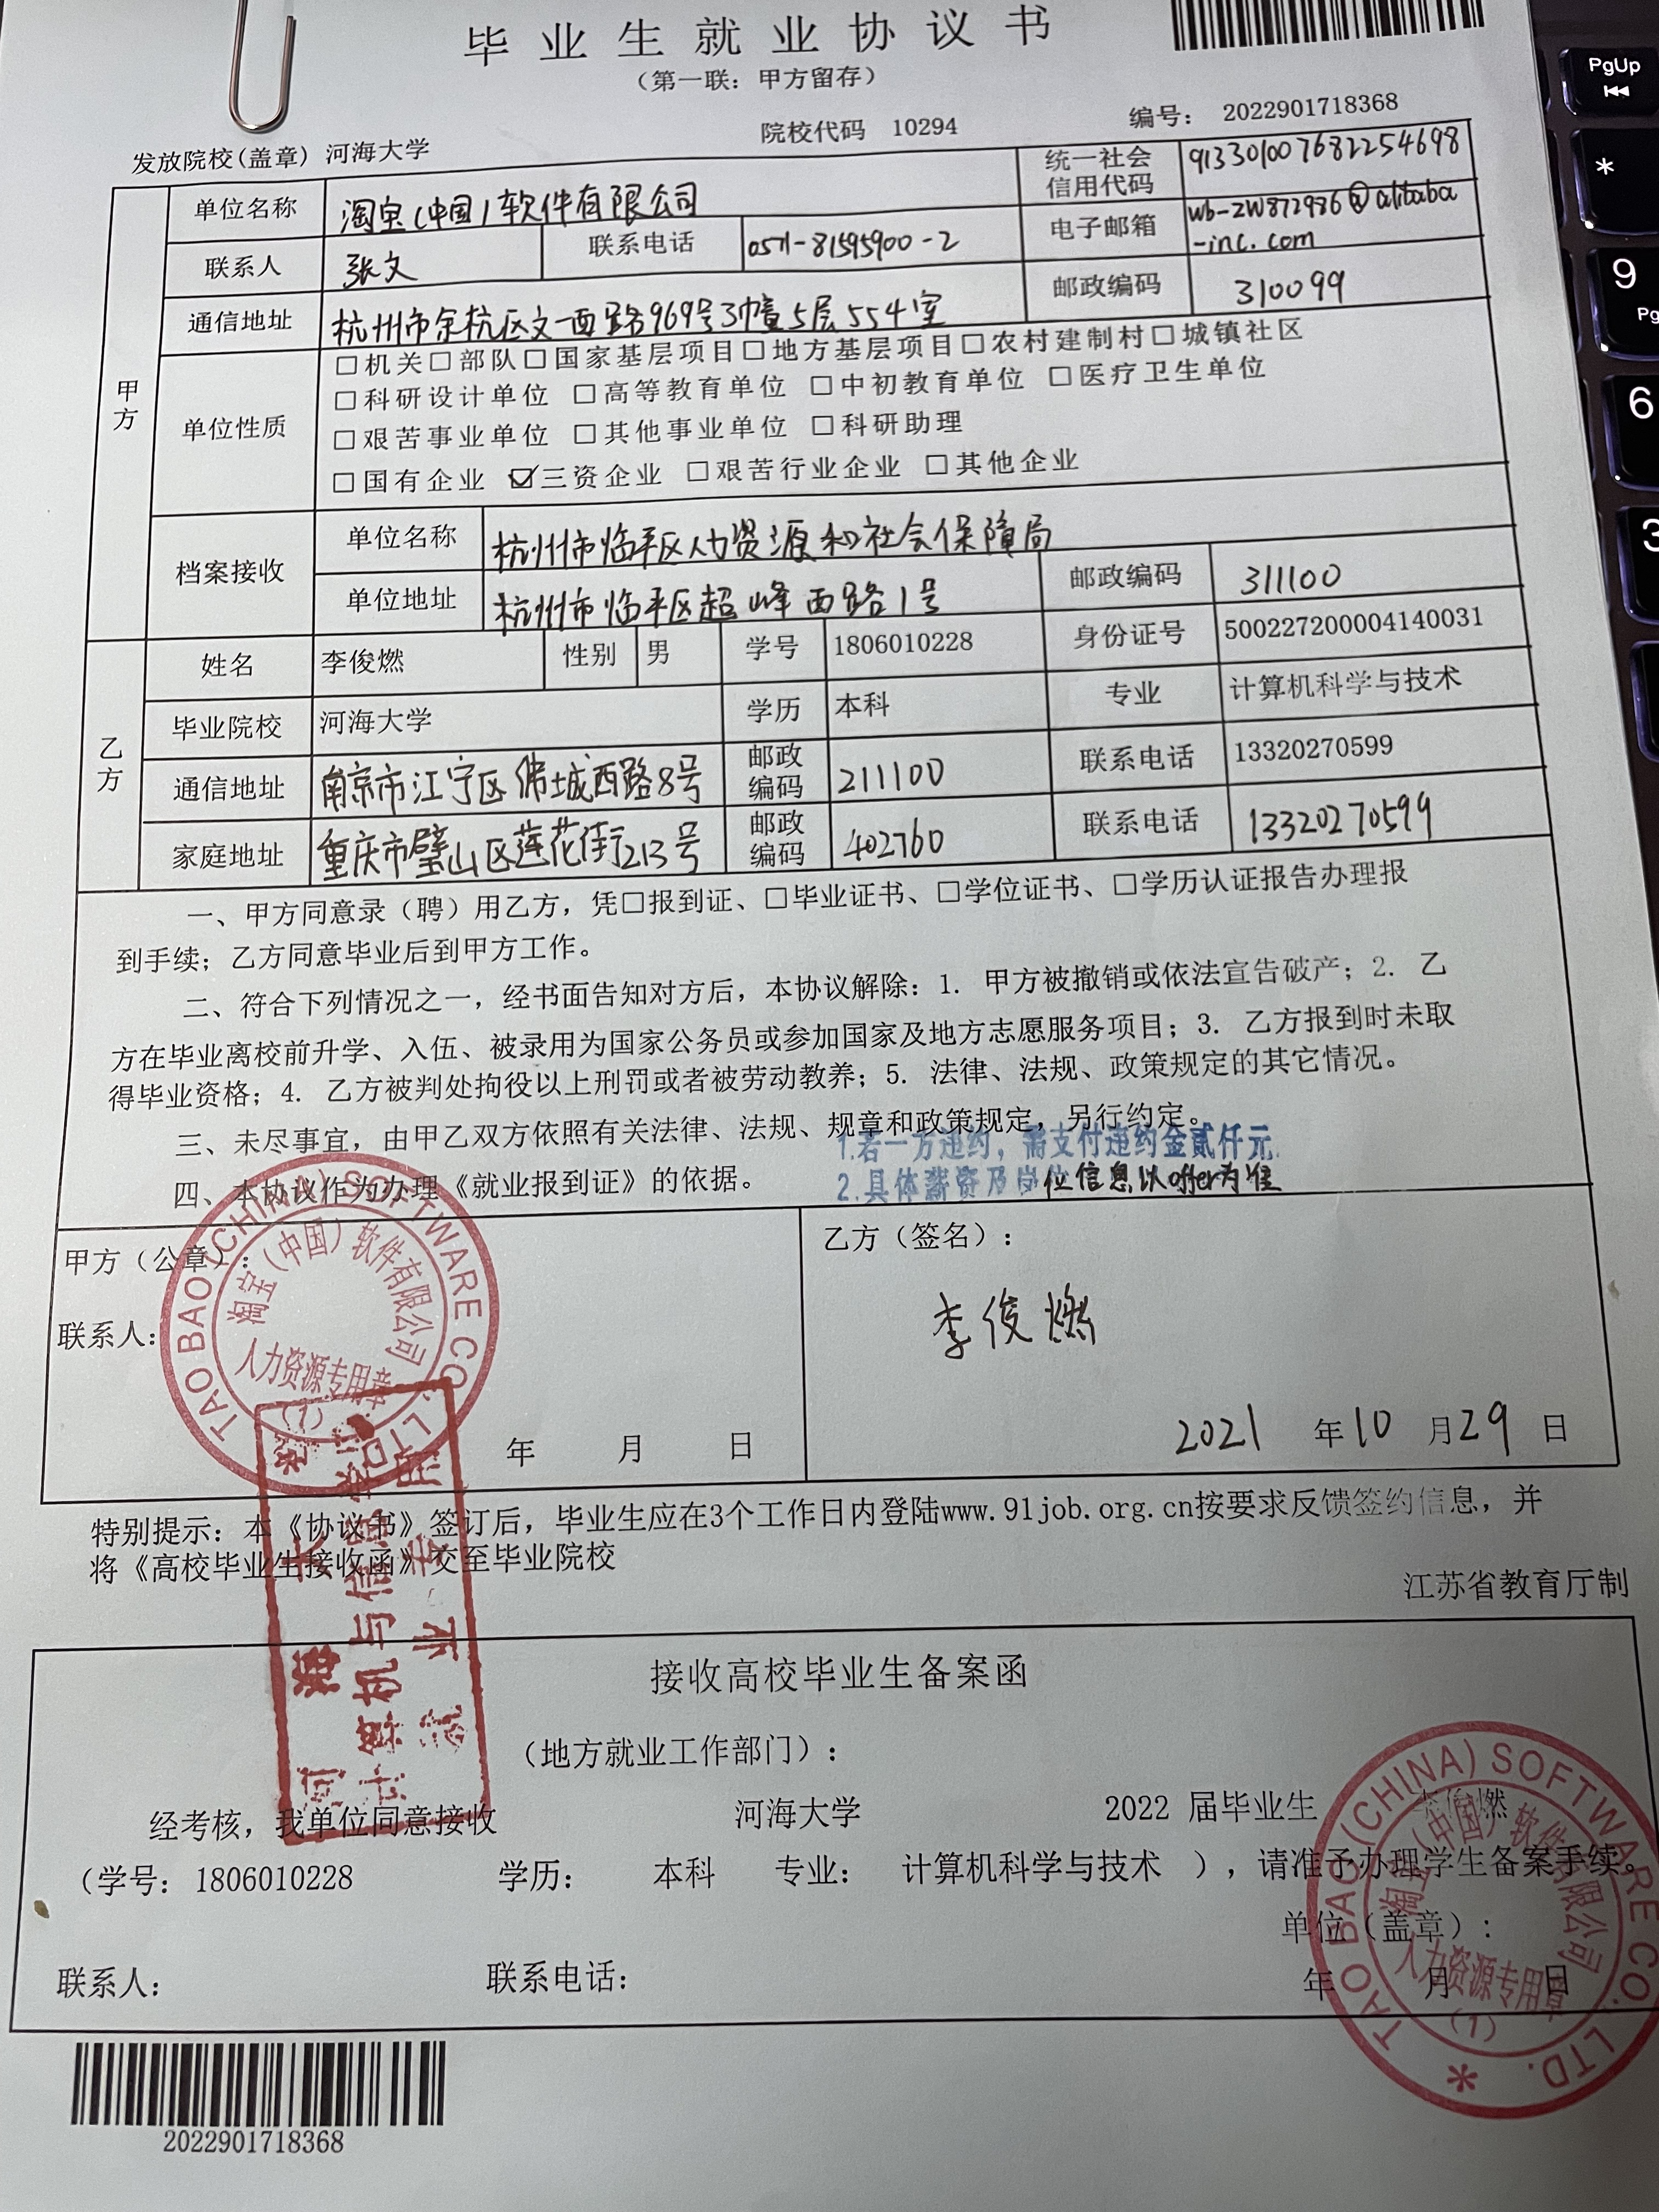 毕业生就业协议书
（第一联：甲方留存）
发放院校(盖章) 河海大学 院校代码 10294 编号： 2022901718368
甲方
单位名称 淘宝（中国）软件有限公司 统一社会信用代码 913301007682254698
联系人 张文 联系电话 0571-81595900-2 电子邮箱 wb-zw872986@alibaba-inc.com
通信地址 杭州市余杭区文一西路969号3幢5层554室 邮政编码 310099
单位性质
□机关□部队□国家基层项目□地方基层项目□农村建制村□城镇社区
□科研设计单位 □高等教育单位 □中初教育单位 □医疗卫生单位
□艰苦事业单位 □其他事业单位 □科研助理
□国有企业 ☑三资企业 □艰苦行业企业 □其他企业
档案接收
单位名称 杭州市临平区人力资源和社会保障局
单位地址 杭州市临平区超峰西路1号 邮政编码 311100
乙方
姓名 李俊燃 性别 男 学号 1806010228 身份证号 500227200004140031
毕业院校 河海大学 学历 本科 专业 计算机科学与技术
通信地址 南京市江宁区佛城西路8号 邮政编码 211100 联系电话 13320270599
家庭地址 重庆市璧山区莲花街213号 邮政编码 402760 联系电话 13320270599
一、甲方同意录（聘）用乙方，凭□报到证、□毕业证书、□学位证书、□学历认证报告办理报
到手续；乙方同意毕业后到甲方工作。
二、符合下列情况之一，经书面告知对方后，本协议解除：1. 甲方被撤销或依法宣告破产；2. 乙
方在毕业离校前升学、入伍、被录用为国家公务员或参加国家及地方志愿服务项目；3. 乙方报到时未取
得毕业资格；4. 乙方被判处拘役以上刑罚或者被劳动教养；5. 法律、法规、政策规定的其它情况。
三、未尽事宜，由甲乙双方依照有关法律、法规、规章和政策规定，另行约定。
1.若一方违约，需支付违约金贰仟元.
四、本协议作为办理《就业报到证》的依据。
2.具体薪资及岗位信息以offer为准
甲方（公章）：
联系人：
年 月 日
TAO BAO (CHINA) SOFTWARE CO. LTD.
淘宝（中国）软件有限公司
人力资源专用章
(1)
乙方（签名）：
李俊燃
2021 年 10 月 29 日
特别提示：本《协议书》签订后，毕业生应在3个工作日内登陆www.91job.org.cn按要求反馈签约信息，并
将《高校毕业生接收函》交至毕业院校
江苏省教育厅制
接收高校毕业生备案函
（地方就业工作部门）：
经考核，我单位同意接收 河海大学 2022 届毕业生 李俊燃
（学号：1806010228 学历： 本科 专业： 计算机科学与技术 ），请准予办理学生备案手续。
单位（盖章）：
联系人： 联系电话： 年 月 日
TAO BAO (CHINA) SOFTWARE CO. LTD.
淘宝（中国）软件有限公司
人力资源专用章
(1)
2022901718368
PgUp
*
9
Pg
6
3